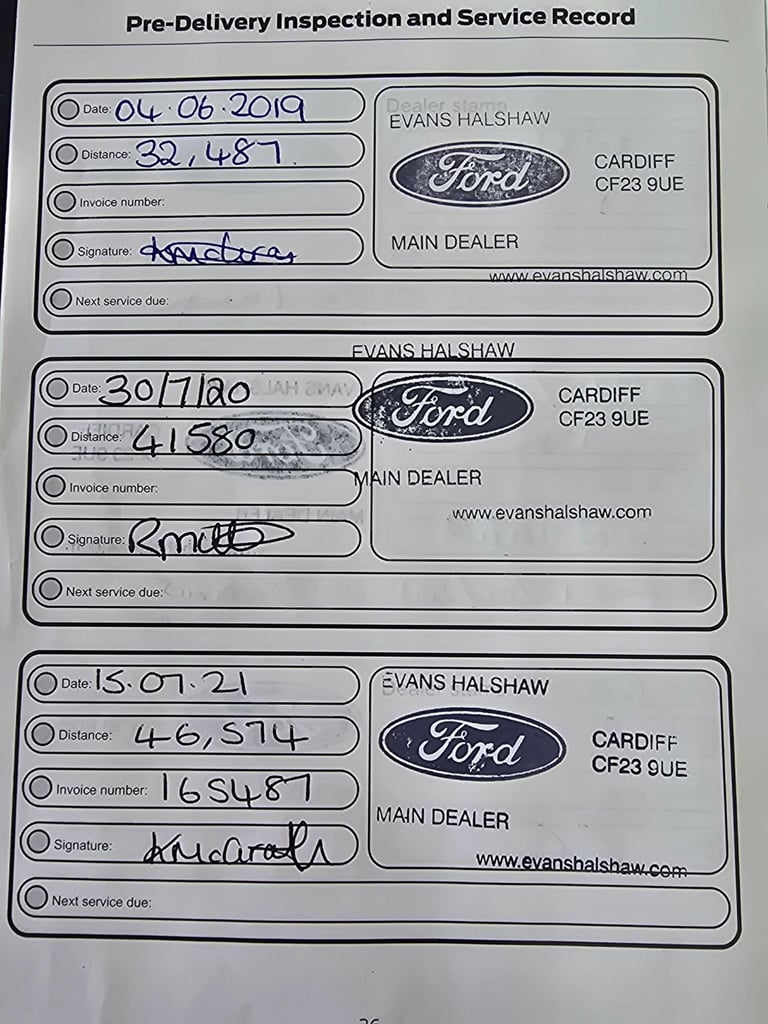 Pre-Delivery Inspection and Service Record
Date: 04.06.2019
Dealer stamp
EVANS HALSHAW
Distance: 32,487.
Ford
CARDIFF
CF23 9UE
Invoice number:
Signature:
MAIN DEALER
www.evanshalshaw.com
Next service due:
EVANS HALSHAW
Date: 30/7/20
Ford
CARDIFF
CF23 9UE
Distance: 41580
Invoice number:
MAIN DEALER
www.evanshalshaw.com
Signature:
Next service due:
Date: 15.07.21
EVANS HALSHAW
Dealer
Distance: 46,574
Ford
CARDIFF
CF23 9UE
Invoice number: 165487
MAIN DEALER
Signature:
www.evanshalshaw.com
Next service due: